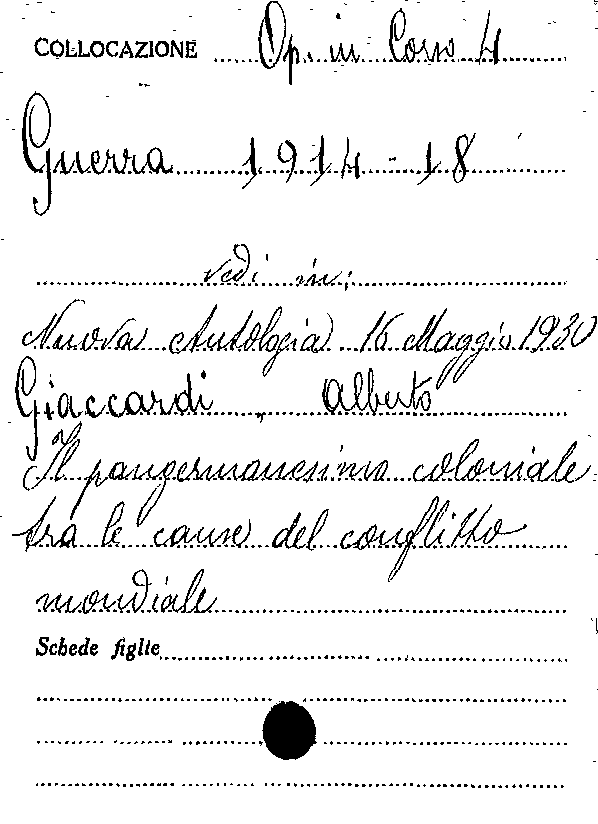 COLLOCAZIONE Op. in Corso 4
Guerra 1914-18
vedi in:
Nuova Antologia 16 Maggio 1930
Giaccardi Alberto
Il pangermanesimo coloniale
tra le cause del conflitto
mondiale
Schede figlie